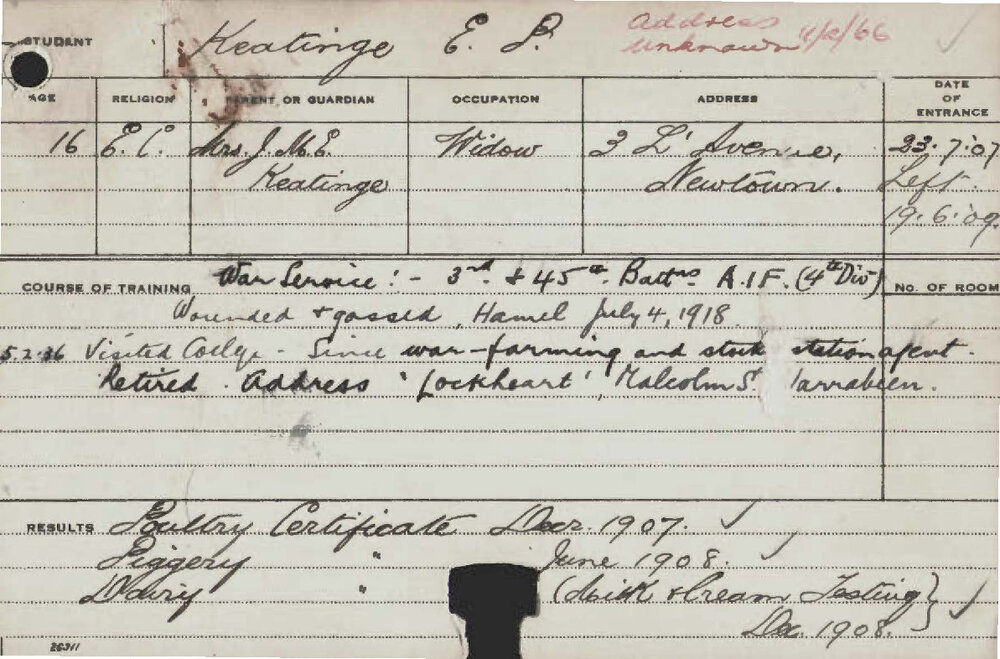 STUDENT Keatinge E. P. Address
unknown 4/2/66
AGE RELIGION PARENT OR GUARDIAN OCCUPATION ADDRESS DATE OF ENTRANCE
16 E.C. Mrs. J. M. E. Widow 3 L' Avenue, 23.7.07
Keatinge Newtown. Left
19.6.09
COURSE OF TRAINING War Service:- 3rd & 45th Battns A.I.F. (4th Div) No. OF ROOM
Wounded & gassed, Hamel July 4, 1918
5.2.36 Visited College - Since war-farming and stock station agent.
Retired. Address 'Lockheart', Malcolm St. Narrabeen.
RESULTS Poultry Certificate Decr. 1907.
Piggery " June 1908.
Dairy " (Milk & Cream Testing)
Dec. 1908.
26311